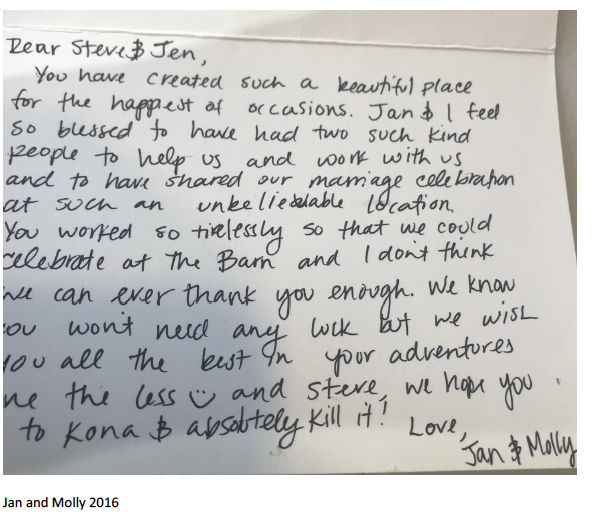 Dear Steve & Jen,
You have created such a beautiful place
for the happiest of occasions. Jan & I feel
so blessed to have had two such kind
people to help us and work with us
and to have shared our marriage celebration
at such an unbelievable location.
You worked so tirelessly so that we could
celebrate at The Barn and I don't think
we can ever thank you enough. We know
ou won't need any luck but we wish
you all the best in your adventures
ne the less and Steve, we hope you
to Kona & absolutely kill it!
Love,
Jan & Molly
Jan and Molly 2016